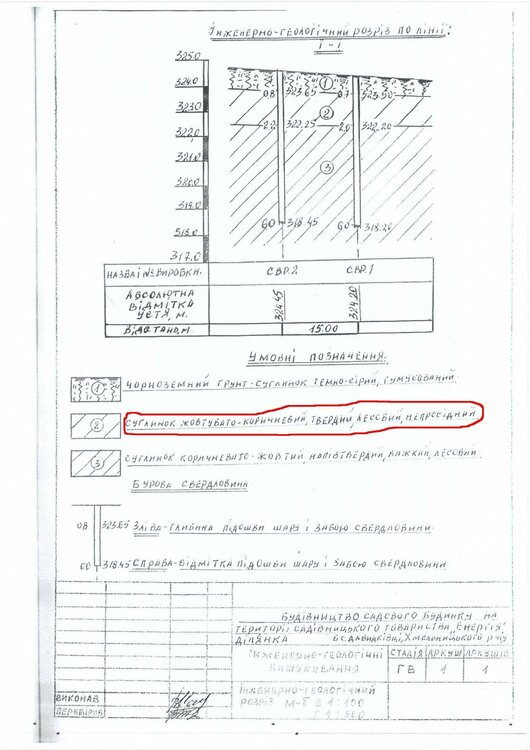 Інженерно-геологічний розріз по лінії
I-I
325.0
324.0
323.0
322.0
321.0
320.0
319.0
318.0
317.0
1
0.8 323.65 0.7 323.50
2
2.2 322.25 2.0 322.20
3
6.0 318.45 6.0 318.20
Назва і № виробки. СВР.2 СВР.1
Абсолютна відмітка устя, м. 324.45 324.20
Відстань, м. 15.00
Умовні позначення:
1 Чорноземний грунт-суглинок темно-сірий, гумусований
2 Суглинок жовтувато-коричневий, твердий, лесовий, непросідний
3 Суглинок коричневато-жовтий, напівтвердий, важкий, лесовий.
Бурова свердловина
0.8 323.65 Зліва-глибина підошви шару і забою свердловини
6.0 318.45 Справа-відмітка підошви шару і забою свердловини.
Будівництво садового будинку на
території садівницького товариства „Енергія",
ділянка с. Давидківці, Хмельницького р-ну
Інженерно-геологічні
вишукування
Стадія Аркуш Аркушів
ГВ 1 1
Виконав
Перевірив
Інженерно-геологічний
розріз М-Б В 1:100
Г 1:500